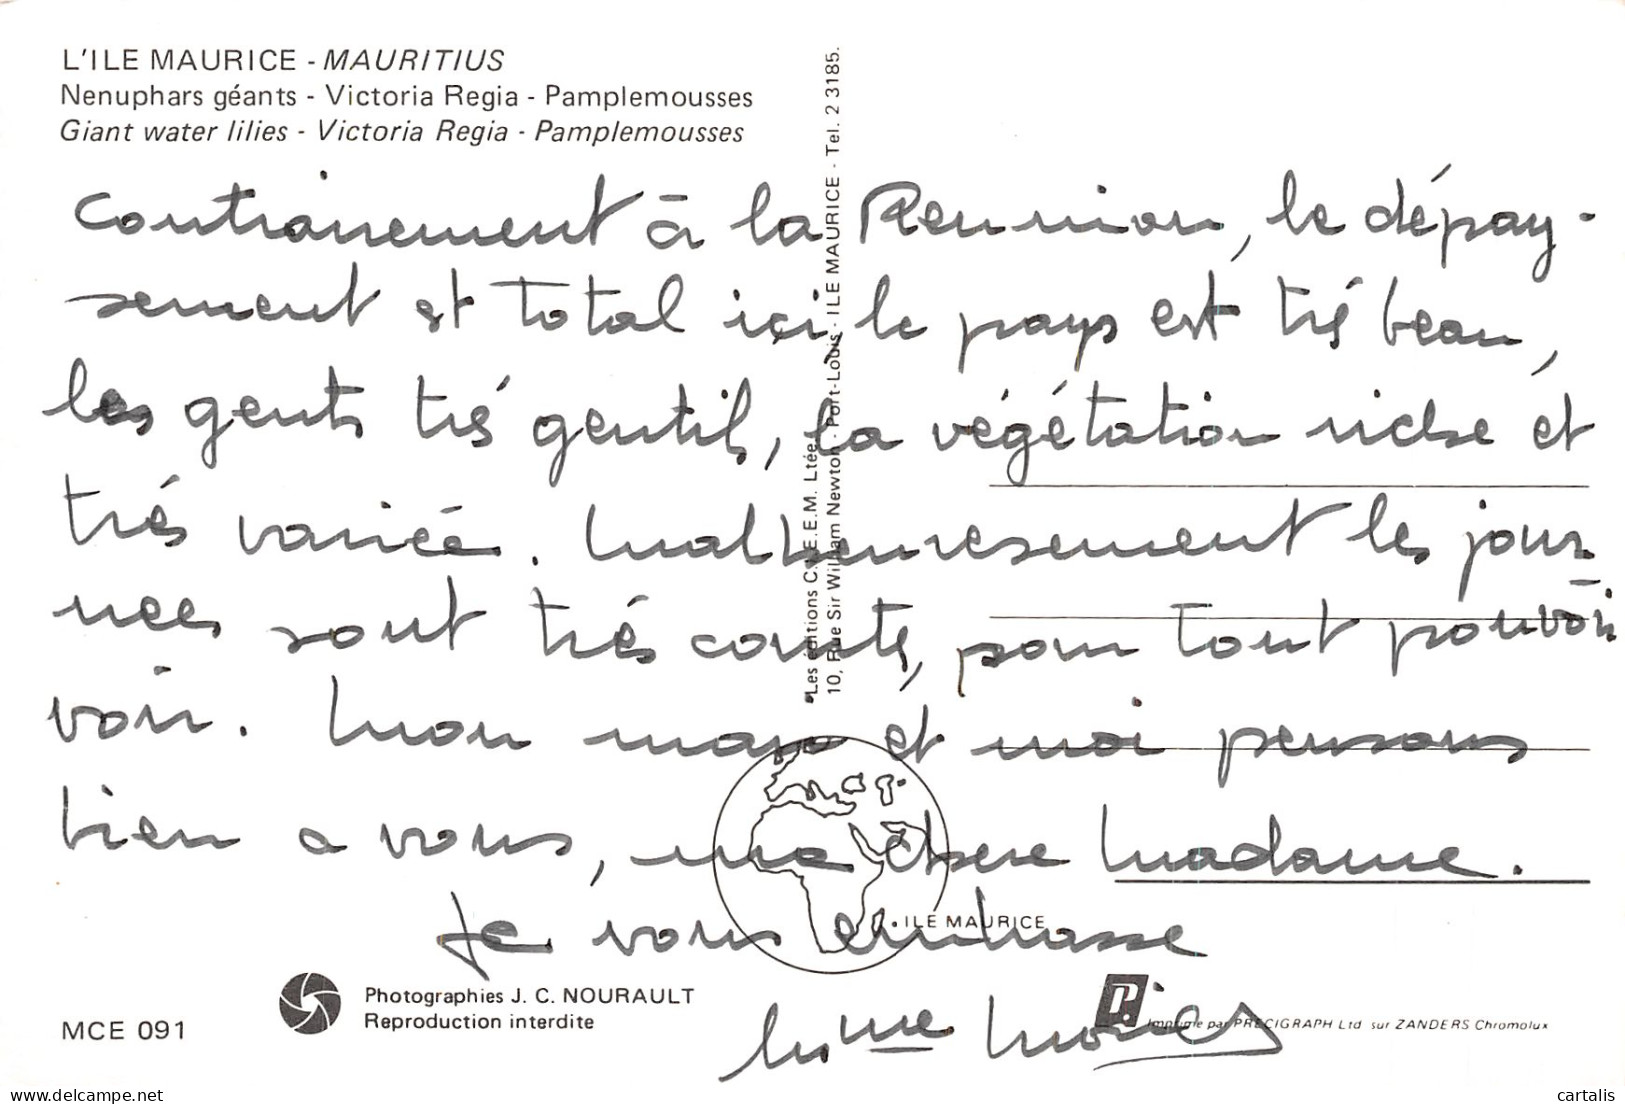 L'ILE MAURICE - MAURITIUS
Nenuphars géants - Victoria Regia - Pamplemousses
Giant water lilies - Victoria Regia - Pamplemousses
Contrairement à la Reunnion, le dépay-
sement est total ici, le pays est trés beau,
les gents trés gentils, la végétation riche et
trés variée. Malheureusement les jour
nees sont trés courts, pour tout pouvoir
voir. Mon mari et moi pensons
bien a vous, ma chere Madame.
Je vous embrasse
Mme
Les éditions C. E.E.M. Ltée.
10, Rue Sir William Newton - Port-Louis - ILE MAURICE - Tel. 2 3185.
ILE MAURICE
Photographies J. C. NOURAULT
Reproduction interdite
MCE 091
P.
Imprimé par PRECIGRAPH Ltd sur ZANDERS Chromolux
delcampe.net
cartalis